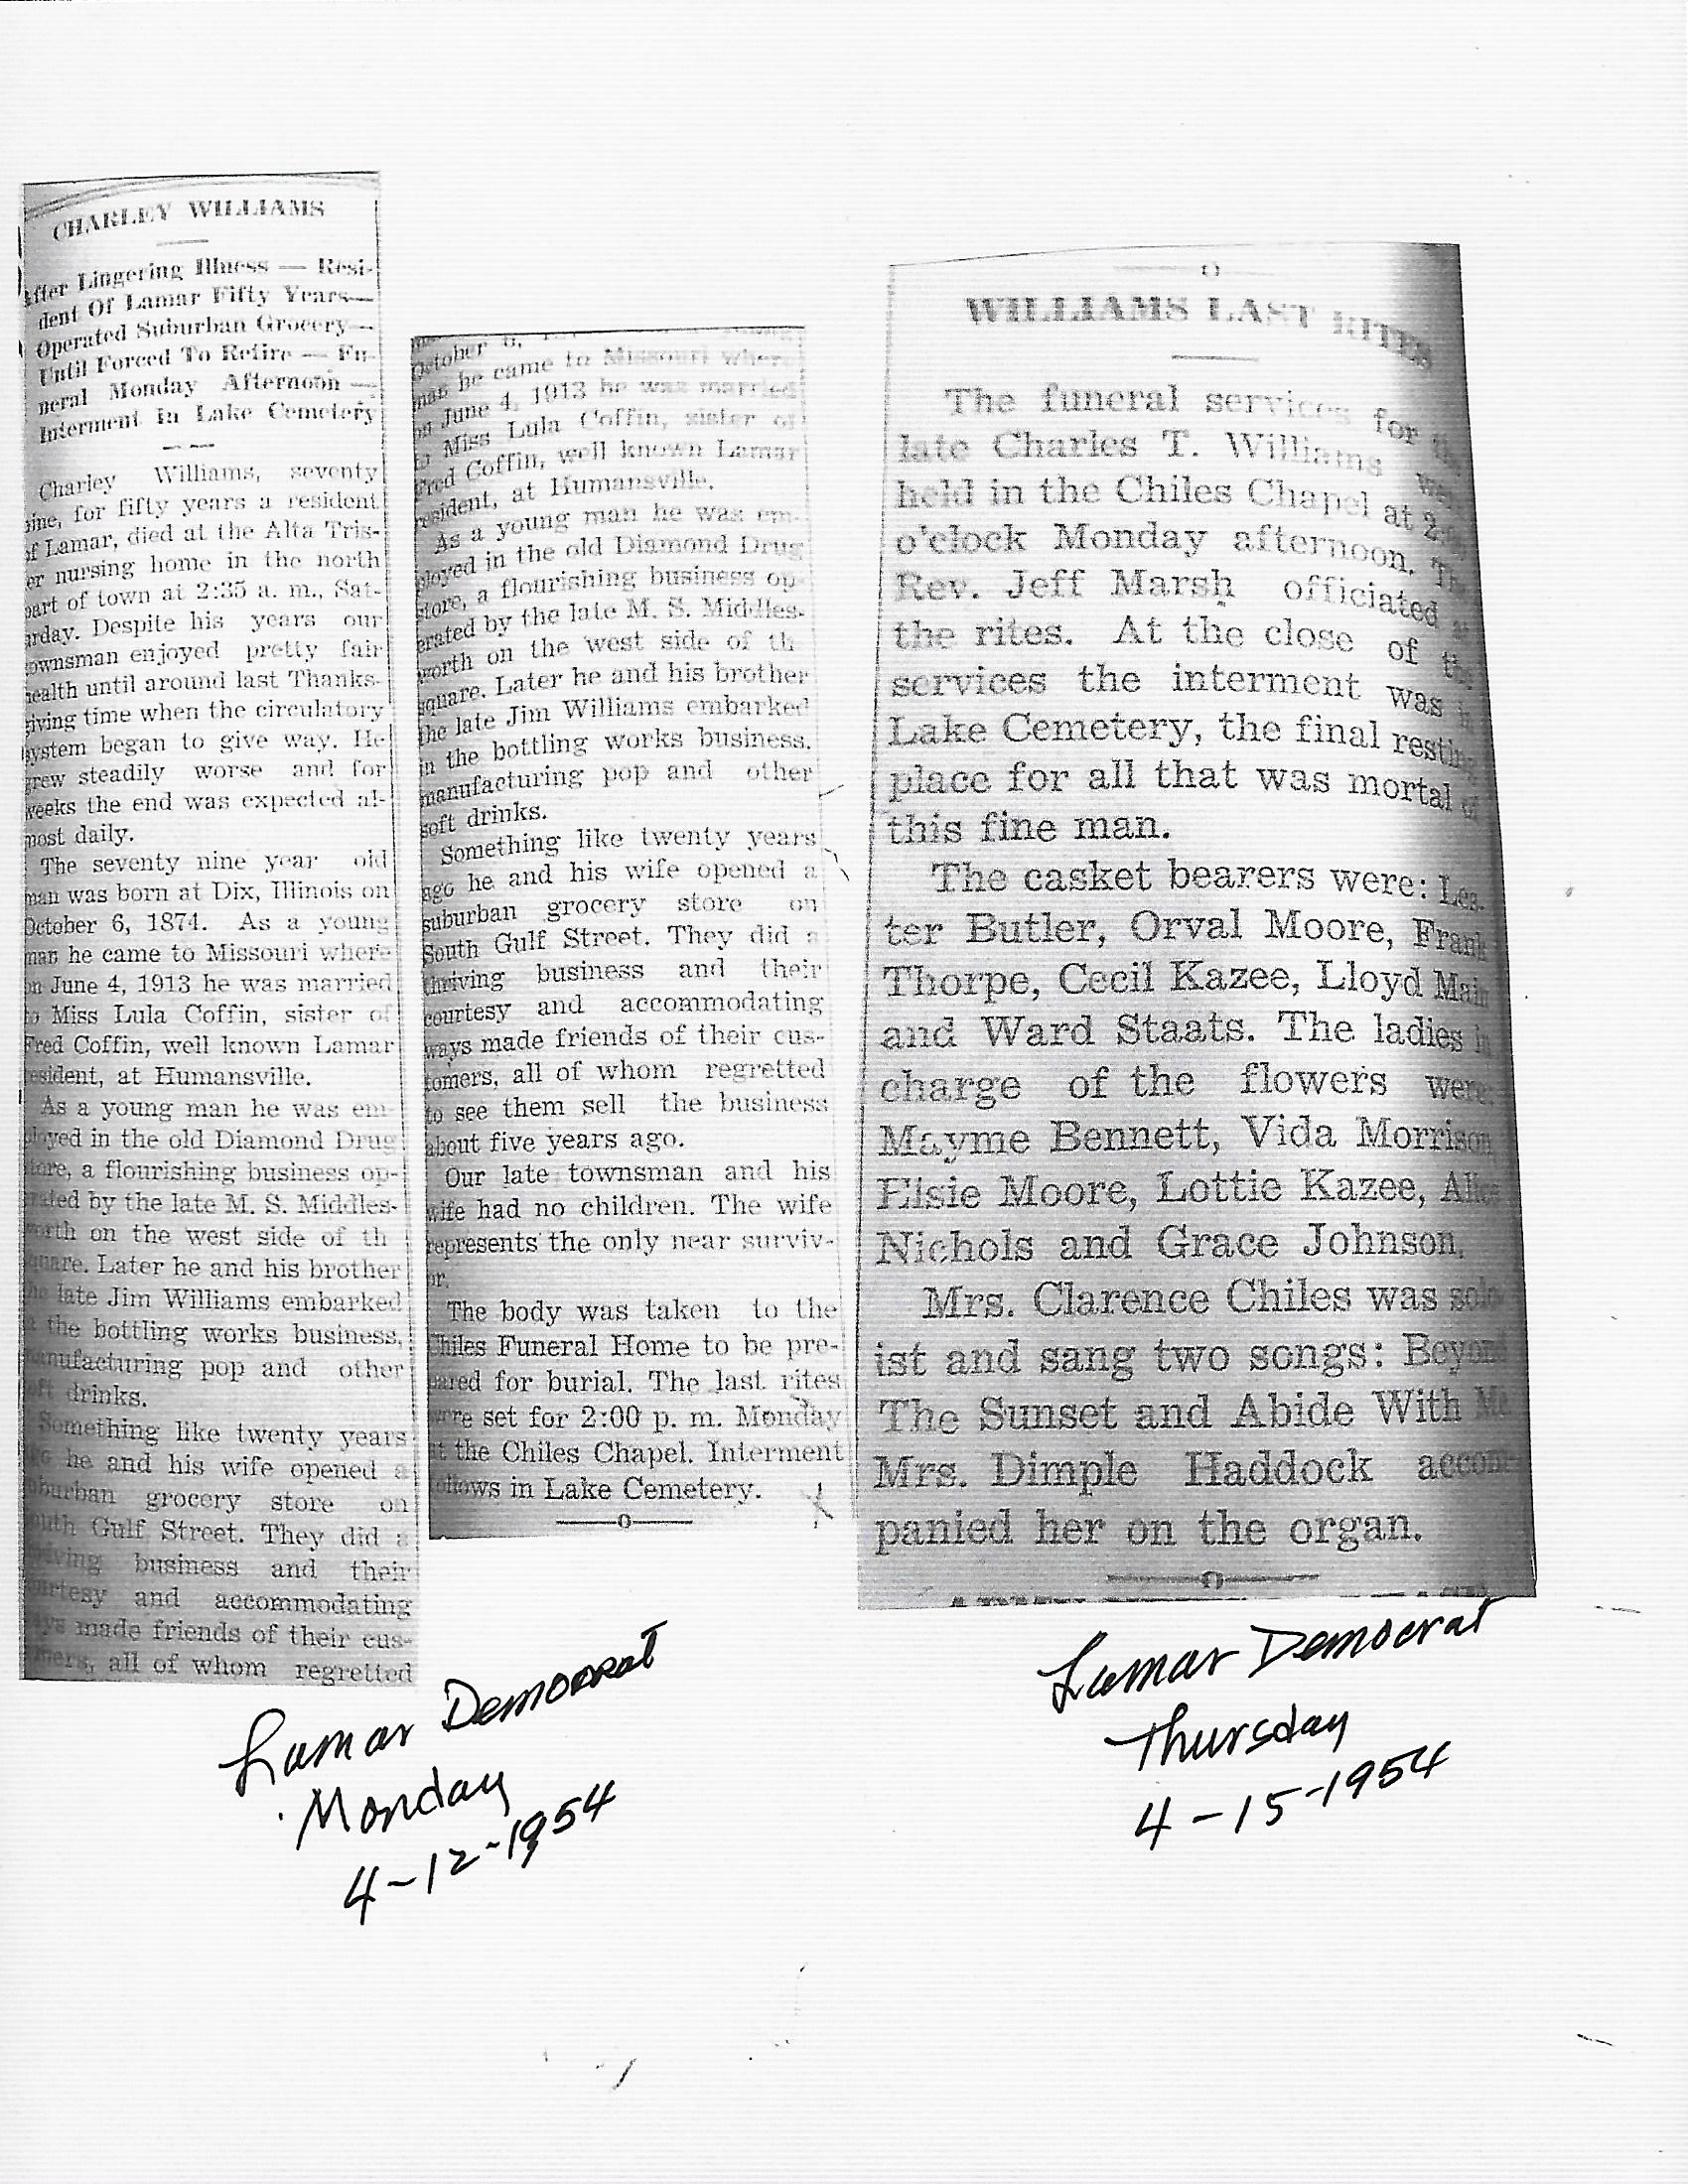 CHARLEY WILLIAMS
After Lingering Illness — Resi-
dent Of Lamar Fifty Years—
Operated Suburban Grocery—
Until Forced To Retire — Fu-
neral Monday Afternoon —
Interment In Lake Cemetery
Charley Williams, seventy
nine, for fifty years a resident
of Lamar, died at the Alta Tris-
er nursing home in the north
part of town at 2:35 a. m., Sat-
urday. Despite his years our
townsman enjoyed pretty fair
health until around last Thanks-
giving time when the circulatory
system began to give way. He
grew steadily worse and for
weeks the end was expected al-
most daily.
The seventy nine year old
man was born at Dix, Illinois on
October 6, 1874. As a young
man he came to Missouri where
on June 4, 1913 he was married
to Miss Lula Coffin, sister of
Fred Coffin, well known Lamar
resident, at Humansville.
As a young man he was em-
ployed in the old Diamond Drug
store, a flourishing business op-
erated by the late M. S. Middles-
worth on the west side of th
square. Later he and his brother
the late Jim Williams embarked
in the bottling works business,
manufacturing pop and other
soft drinks.
Something like twenty years
ago he and his wife opened a
suburban grocery store on
South Gulf Street. They did a
thriving business and their
courtesy and accommodating
ways made friends of their cus-
tomers, all of whom regretted
October 6,
man he came to Missouri where
on June 4, 1913 he was married
to Miss Lula Coffin, sister of
Fred Coffin, well known Lamar
resident, at Humansville.
As a young man he was em-
ployed in the old Diamond Drug
store, a flourishing business op-
erated by the late M. S. Middles-
worth on the west side of th
square. Later he and his brother
the late Jim Williams embarked
in the bottling works business,
manufacturing pop and other
soft drinks.
Something like twenty years
ago he and his wife opened a
suburban grocery store on
South Gulf Street. They did a
thriving business and their
courtesy and accommodating
ways made friends of their cus-
tomers, all of whom regretted
to see them sell the business
about five years ago.
Our late townsman and his
wife had no children. The wife
represents the only near surviv-
or.
The body was taken to the
Chiles Funeral Home to be pre-
pared for burial. The last rites
were set for 2:00 p. m. Monday
at the Chiles Chapel. Interment
follows in Lake Cemetery.
Lamar Democrat
Monday
4-12-1954
WILLIAMS LAST RITES
The funeral services for the
late Charles T. Williams were
held in the Chiles Chapel at 2:00
o'clock Monday afternoon. The
Rev. Jeff Marsh officiated at
the rites. At the close of the
services the interment was in
Lake Cemetery, the final resting
place for all that was mortal of
this fine man.
The casket bearers were: Les-
ter Butler, Orval Moore, Frank
Thorpe, Cecil Kazee, Lloyd Main
and Ward Staats. The ladies in
charge of the flowers were:
Mayme Bennett, Vida Morrison,
Elsie Moore, Lottie Kazee,
Nichols and Grace Johnson.
Mrs. Clarence Chiles was solo-
ist and sang two songs: Beyond
The Sunset and Abide With Me.
Mrs. Dimple Haddock accom-
panied her on the organ.
Lamar Democrat
Thursday
4-15-1954